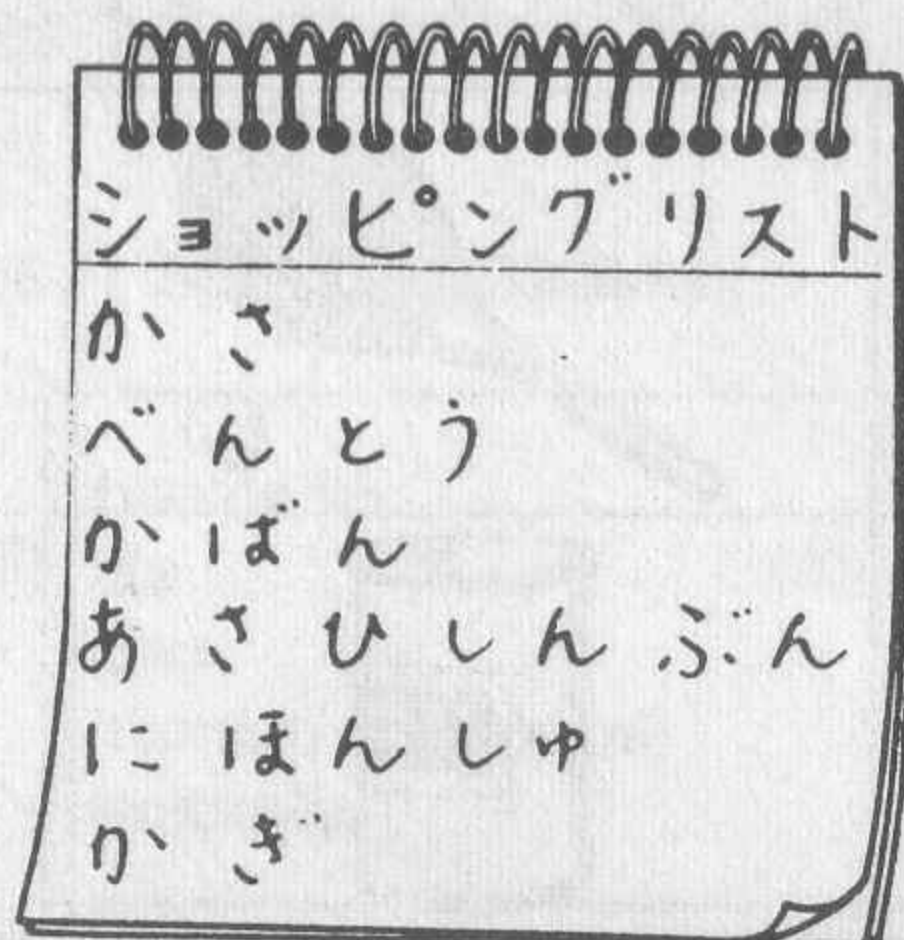 ショッピングリスト
かさ
べんとう
かばん
あさひしんぶん
にほんしゅ
かぎ